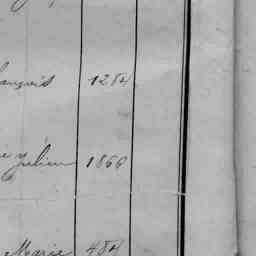 ançois 1284
e Julien 1866
Marie 484